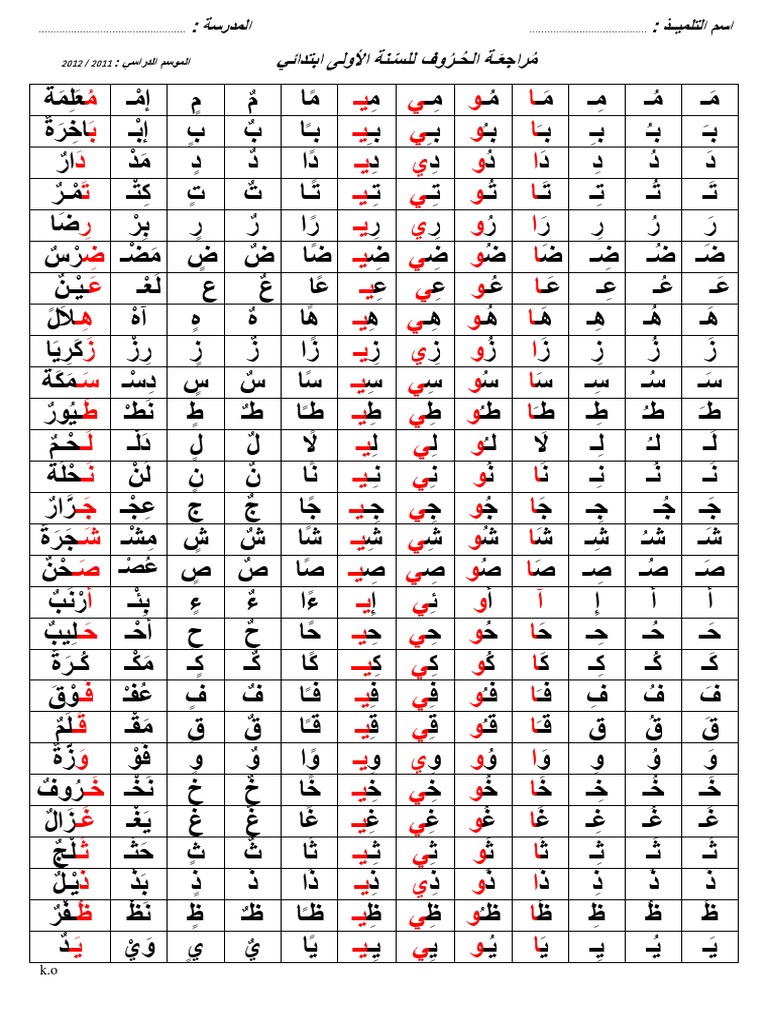 اسم التلميـــذ : ........................................ المدرسة : ........................................
مُراجعَة الحُرُوف للسّنة الأولى ابتدائي الموسم الدراسي : 2011 / 2012
مَـ مُـ مِـ مَـا مُـو مِـي مِيـ مًا مٌ مٍ إِمْـ مُعَلِمَة
بَـ بُـ بِـ بَـا بُـو بِـي بِيـ بًـا بٌ بٍ إِبْـ بَاخِرَةٌ
دَ دُ دِ دَا دُو دِي دِيـ دًا دٌ دٍ مَدْ دَارٌ
تَـ تُـ تِـ تَـا تُـو تِـي تِيـ تًـا تٌ تٍ كِتْـ تَمْـرٌ
رَ رُ رِ رَا رُو رِي رِيـ رًا رٌ رٍ بِرْ رِضَا
ضَـ ضُـ ضِـ ضَا ضُو ضِي ضِيـ ضًا ضٌ ضٍ مَضْـ ضِرْسٌ
عَـ عُـ عِـ عَـا عُـو عِـي عِيـ عًا عٌ عٍ لَعْـ عَيْـنٌ
هَـ هُـ هِـ هَـا هُـو هِـي هِيـ هًا هٌ هٍ آهْ هِـلَالٌ
زَ زُ زِ زَا زُو زِي زِيـ زًا زٌ زٍ رِزْ زَكَرِيَا
سَـ سُـ سِـ سَا سُو سِي سِيـ سًا سٌ سٍ دِسْـ سَـمَكَة
طَـ طُـ طِـ طَـا طُـو طِي طِيـ طًـا طٌـ طٍ نَطْـ طُـيُورٌ
لَـ لُـ لِـ لَا لُـو لِـي لِيـ لًا لٌ لٍ دَلْـ لَـحْـمٌ
نَـ نُـ نِـ نَا نُو نِـي نِـيـ نًا نٌ نٍ لَنْ نَـحْلَة
جَـ جُـ جِـ جَا جُو جِي جِيـ جًا جٌ جٍ عِجْـ جَـرَّارٌ
شَـ شُـ شِـ شَا شُو شِي شِيـ شًا شٌ شٍ مِشْـ شَـجَرَةٌ
صَـ صُـ صِـ صَا صُو صِي صِيـ صًا صٌ صٍ عُصْـ صَـحْنٌ
أَ أُ إِ آ أُو ئِي إِيـ ءًا ءٌ ءٍ بِئْـ أَرْنَبٌ
حَـ حُـ حِـ حَا حُو حِي حِيـ حًا حٌ حٍ أَحْـ حَـلِيبٌ
كَـ كُـ كِـ كَا كُو كِي كِيـ كًا كٌـ كٍـ مَكْـ كُـرَةٌ
فَـ فُـ فِـ فَـا فُـو فِي فِيـ فًـا فٌـ فٍـ عُفْـ فَـوْقَ
قَـ قُـ قِـ قَـا قُـو قِي قِيـ قًـا قٌ قٍ مَقْـ قَـلَمٌ
وَ وُ وِ وَا وُو وِي وِيـ وًا وٌ وٍ فَوْ وَزَّةٌ
خَـ خُـ خِـ خَا خُو خِي خِيـ خًا خٌ خٍ نَخْـ خَـرُوفٌ
غَـ غُـ غِـ غَا غُو غِي غِيـ غًا غٌ غٍ يَغْـ غَـزَالٌ
ثَـ ثُـ ثِـ ثَا ثُو ثِي ثِـيـ ثًا ثٌ ثٍ حَثْـ ثَـلْجٌ
ذَ ذُ ذِ ذَا ذُو ذِي ذِيـ ذًا ذٌ ذٍ بَذْ ذَيْـلٌ
ظَـ ظُـ ظِـ ظَا ظُـو ظِي ظِيـ ظًـا ظٌـ ظٍ نَظْـ ظُـفْرٌ
يَـ يُـ يِـ يَا يُو يِي يِيـ يًا يٌ يٍ وَيْ يَـدٌ
k.o